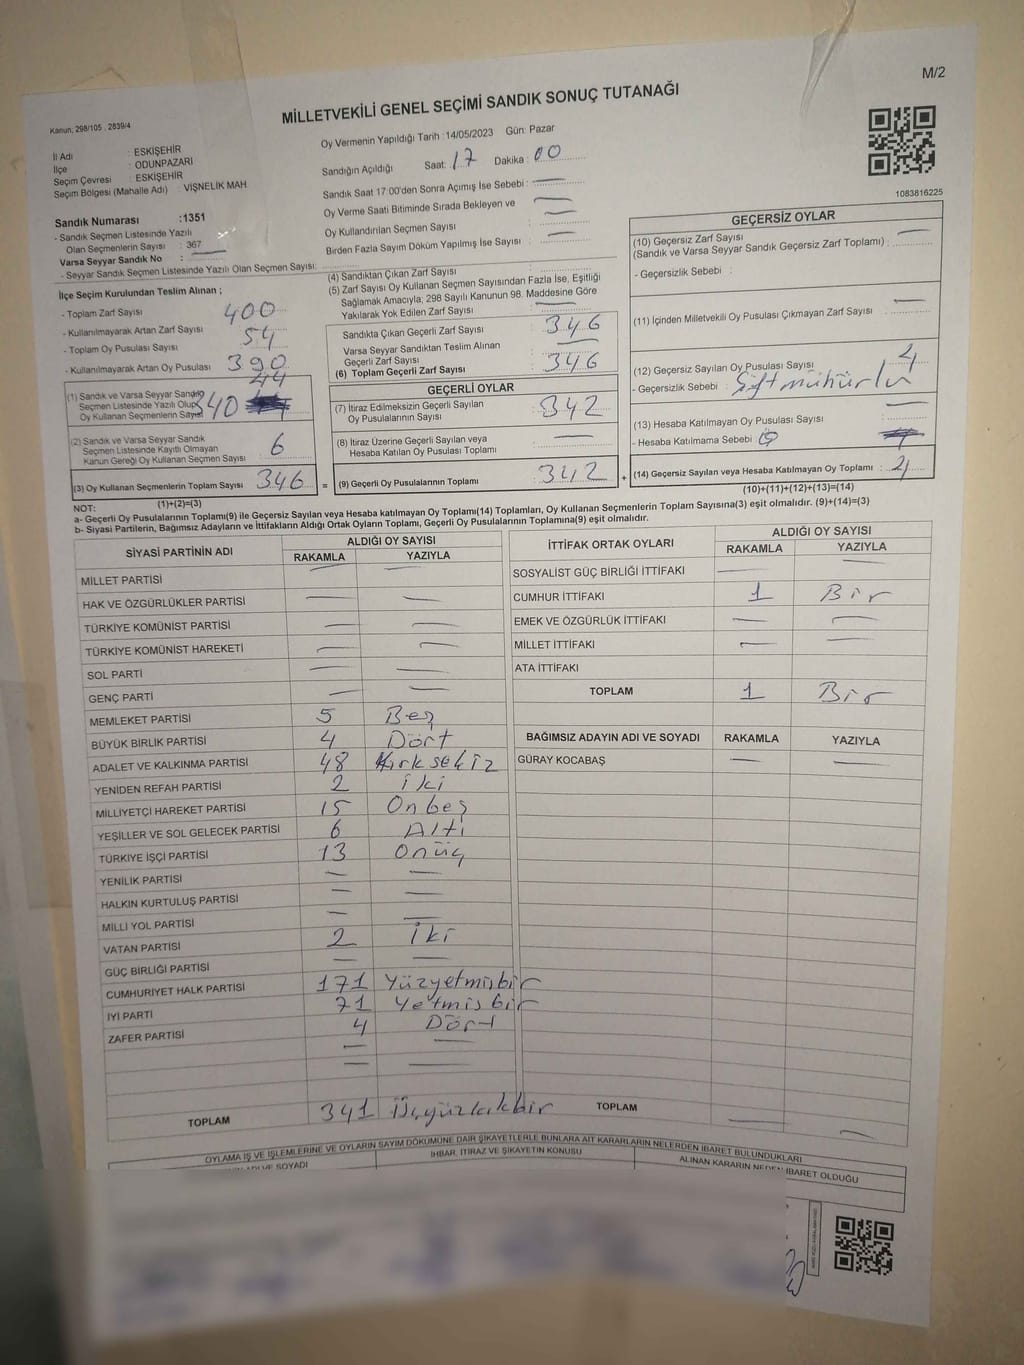 M/2
MİLLETVEKİLİ GENEL SEÇİMİ SANDIK SONUÇ TUTANAĞI
Kanun, 298/105 , 2839/4
İl Adı : ESKİŞEHİR
İlçe : ODUNPAZARI
Seçim Çevresi : ESKİŞEHİR
Seçim Bölgesi (Mahalle Adı) : VİŞNELİK MAH.
Oy Vermenin Yapıldığı Tarih :14/05/2023 Gün: Pazar
Sandığın Açıldığı Saat: 17 Dakika : 00
Sandık Saat 17:00'den Sonra Açımış İse Sebebi :
Oy Verme Saati Bitiminde Sırada Bekleyen ve
Oy Kullandırılan Seçmen Sayısı
Birden Fazla Sayım Döküm Yapılmış İse Sayısı
1083816225
Sandık Numarası :1351
- Sandık Seçmen Listesinde Yazılı
Olan Seçmenlerin Sayısı : 367
Varsa Seyyar Sandık No :
- Seyyar Sandık Seçmen Listesinde Yazılı Olan Seçmen Sayısı:
İlçe Seçim Kurulundan Teslim Alınan ;
- Toplam Zarf Sayısı 400
- Kullanılmayarak Artan Zarf Sayısı 54
- Toplam Oy Pusulası Sayısı 390
- Kullanılmayarak Artan Oy Pusulası 44
(1) Sandık ve Varsa Seyyar Sandık
Seçmen Listesinde Yazılı Olup
Oy Kullanan Seçmenlerin Sayısı 340
(2) Sandık ve Varsa Seyyar Sandık
Seçmen Listesinde Kayıtlı Olmayan
Kanun Gereği Oy Kullanan Seçmen Sayısı 6
(3) Oy Kullanan Seçmenlerin Toplam Sayısı 346
(4) Sandıktan Çıkan Zarf Sayısı
(5) Zarf Sayısı Oy Kullanan Seçmen Sayısından Fazla İse, Eşitliği
Sağlamak Amacıyla; 298 Sayılı Kanunun 98. Maddesine Göre
Yakılarak Yok Edilen Zarf Sayısı
Sandıkta Çıkan Geçerli Zarf Sayısı 346
Varsa Seyyar Sandıktan Teslim Alınan
Geçerli Zarf Sayısı
(6) Toplam Geçerli Zarf Sayısı 346
GEÇERLİ OYLAR
(7) İtiraz Edilmeksizin Geçerli Sayılan
Oy Pusulalarının Sayısı 342
(8) İtiraz Üzerine Geçerli Sayılan veya
Hesaba Katılan Oy Pusulası Toplamı
= (9) Geçerli Oy Pusulalarının Toplamı 342 +
GEÇERSİZ OYLAR
(10) Geçersiz Zarf Sayısı
(Sandık ve Varsa Seyyar Sandık Geçersiz Zarf Toplamı) :
- Geçersizlik Sebebi :
(11) İçinden Milletvekili Oy Pusulası Çıkmayan Zarf Sayısı
(12) Geçersiz Sayılan Oy Pusulası Sayısı 4
- Geçersizlik Sebebi : Çift mühürlü
(13) Hesaba Katılmayan Oy Pusulası Sayısı
- Hesaba Katılmama Sebebi
(14) Geçersiz Sayılan veya Hesaba Katılmayan Oy Toplamı : 4
(1)+(2)=(3)
(10)+(11)+(12)+(13)=(14)
NOT:
a- Geçerli Oy Pusulalarının Toplamı(9) ile Geçersiz Sayılan veya Hesaba katılmayan Oy Toplamı(14) Toplamları, Oy Kullanan Seçmenlerin Toplam Sayısına(3) eşit olmalıdır. (9)+(14)=(3)
b- Siyasi Partilerin, Bağımsız Adayların ve İttifakların Aldığı Ortak Oyların Toplamı, Geçerli Oy Pusulalarının Toplamına(9) eşit olmalıdır.
SİYASİ PARTİNİN ADI ALDIĞI OY SAYISI
RAKAMLA YAZIYLA
MİLLET PARTİSİ
HAK VE ÖZGÜRLÜKLER PARTİSİ
TÜRKİYE KOMÜNİST PARTİSİ
TÜRKİYE KOMÜNİST HAREKETİ
SOL PARTİ
GENÇ PARTİ
MEMLEKET PARTİSİ 5 Beş
BÜYÜK BİRLİK PARTİSİ 4 Dört
ADALET VE KALKINMA PARTİSİ 48 Kırk sekiz
YENİDEN REFAH PARTİSİ 2 İki
MİLLİYETÇİ HAREKET PARTİSİ 15 Onbeş
YEŞİLLER VE SOL GELECEK PARTİSİ 6 Altı
TÜRKİYE İŞÇİ PARTİSİ 13 Onüç
YENİLİK PARTİSİ
HALKIN KURTULUŞ PARTİSİ
MİLLİ YOL PARTİSİ
VATAN PARTİSİ 2 İki
GÜÇ BİRLİĞİ PARTİSİ
CUMHURİYET HALK PARTİSİ 171 Yüzyetmişbir
İYİ PARTİ 71 Yetmiş bir
ZAFER PARTİSİ 4 Dört
TOPLAM 341 Üçyüzkırkbir
İTTİFAK ORTAK OYLARI ALDIĞI OY SAYISI
RAKAMLA YAZIYLA
SOSYALİST GÜÇ BİRLİĞİ İTTİFAKI
CUMHUR İTTİFAKI 1 Bir
EMEK VE ÖZGÜRLÜK İTTİFAKI
MİLLET İTTİFAKI
ATA İTTİFAKI
TOPLAM 1 Bir
BAĞIMSIZ ADAYIN ADI VE SOYADI RAKAMLA YAZIYLA
GÜRAY KOCABAŞ
TOPLAM
OYLAMA İŞ VE İŞLEMLERİNE VE OYLARIN SAYIM DÖKÜMÜNE DAİR ŞİKAYETLERLE BUNLARA AİT KARARLARIN NELERDEN İBARET BULUNDUKLARI
SOYADI İHBAR, İTİRAZ VE ŞİKAYETİN KONUSU ALINAN KARARIN NEDEN İBARET OLDUĞU